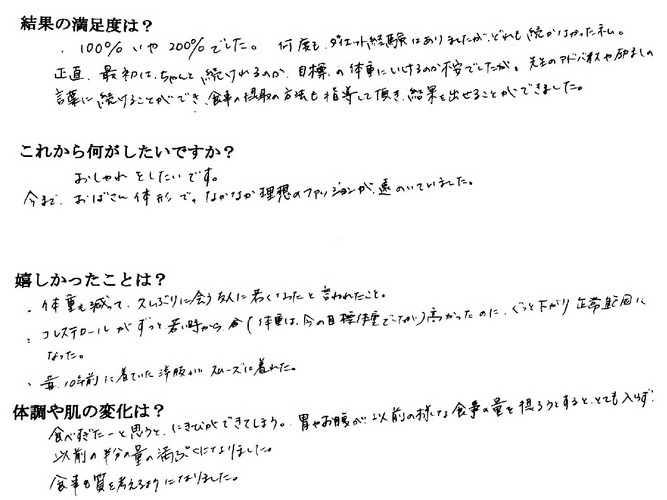 結果の満足度は？
・100% いや 200% でした。 何度も、ダイエット経験はありましたが、どれも続かなかった私。
正直、最初は、ちゃんと続けれるのか、目標の体重にいけるのか不安でしたが、先生のアドバイスや励ましの
言葉に続けることができ、食事の摂取の方法も指導して頂き、結果を出せることができました。
これから何がしたいですか？
おしゃれをしたいです。
今まで、おばさん体形で、なかなか理想のファッションが、遠のいていました。
嬉しかったことは？
・体重も減って、久しぶりに会う友人に若くなったと言われたこと。
・コレステロールがずっと若い時から (体重は、今の目標体重でしたが) 高かったのに、ぐっと下がり 正常範囲に
なった。
・昔、10年前に着ていた洋服がスムーズに着れた。
体調や肌の変化は？
食べすぎたーと思うと、にきびができてしまう。胃やお腹が、以前の様な食事の量を摂ろうとすると、とても入らず
以前の半分の量の満ぷくになりました。
食事も質を考えるようになりました。